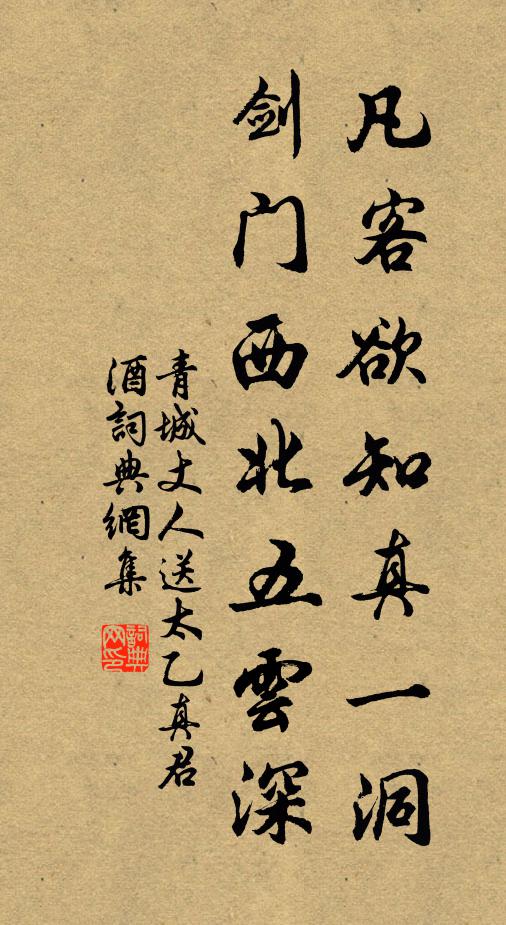 凡客欲知真一洞
剑门西北五雲深
青城丈人送太乙真君
酒詞典網集
詞典网印